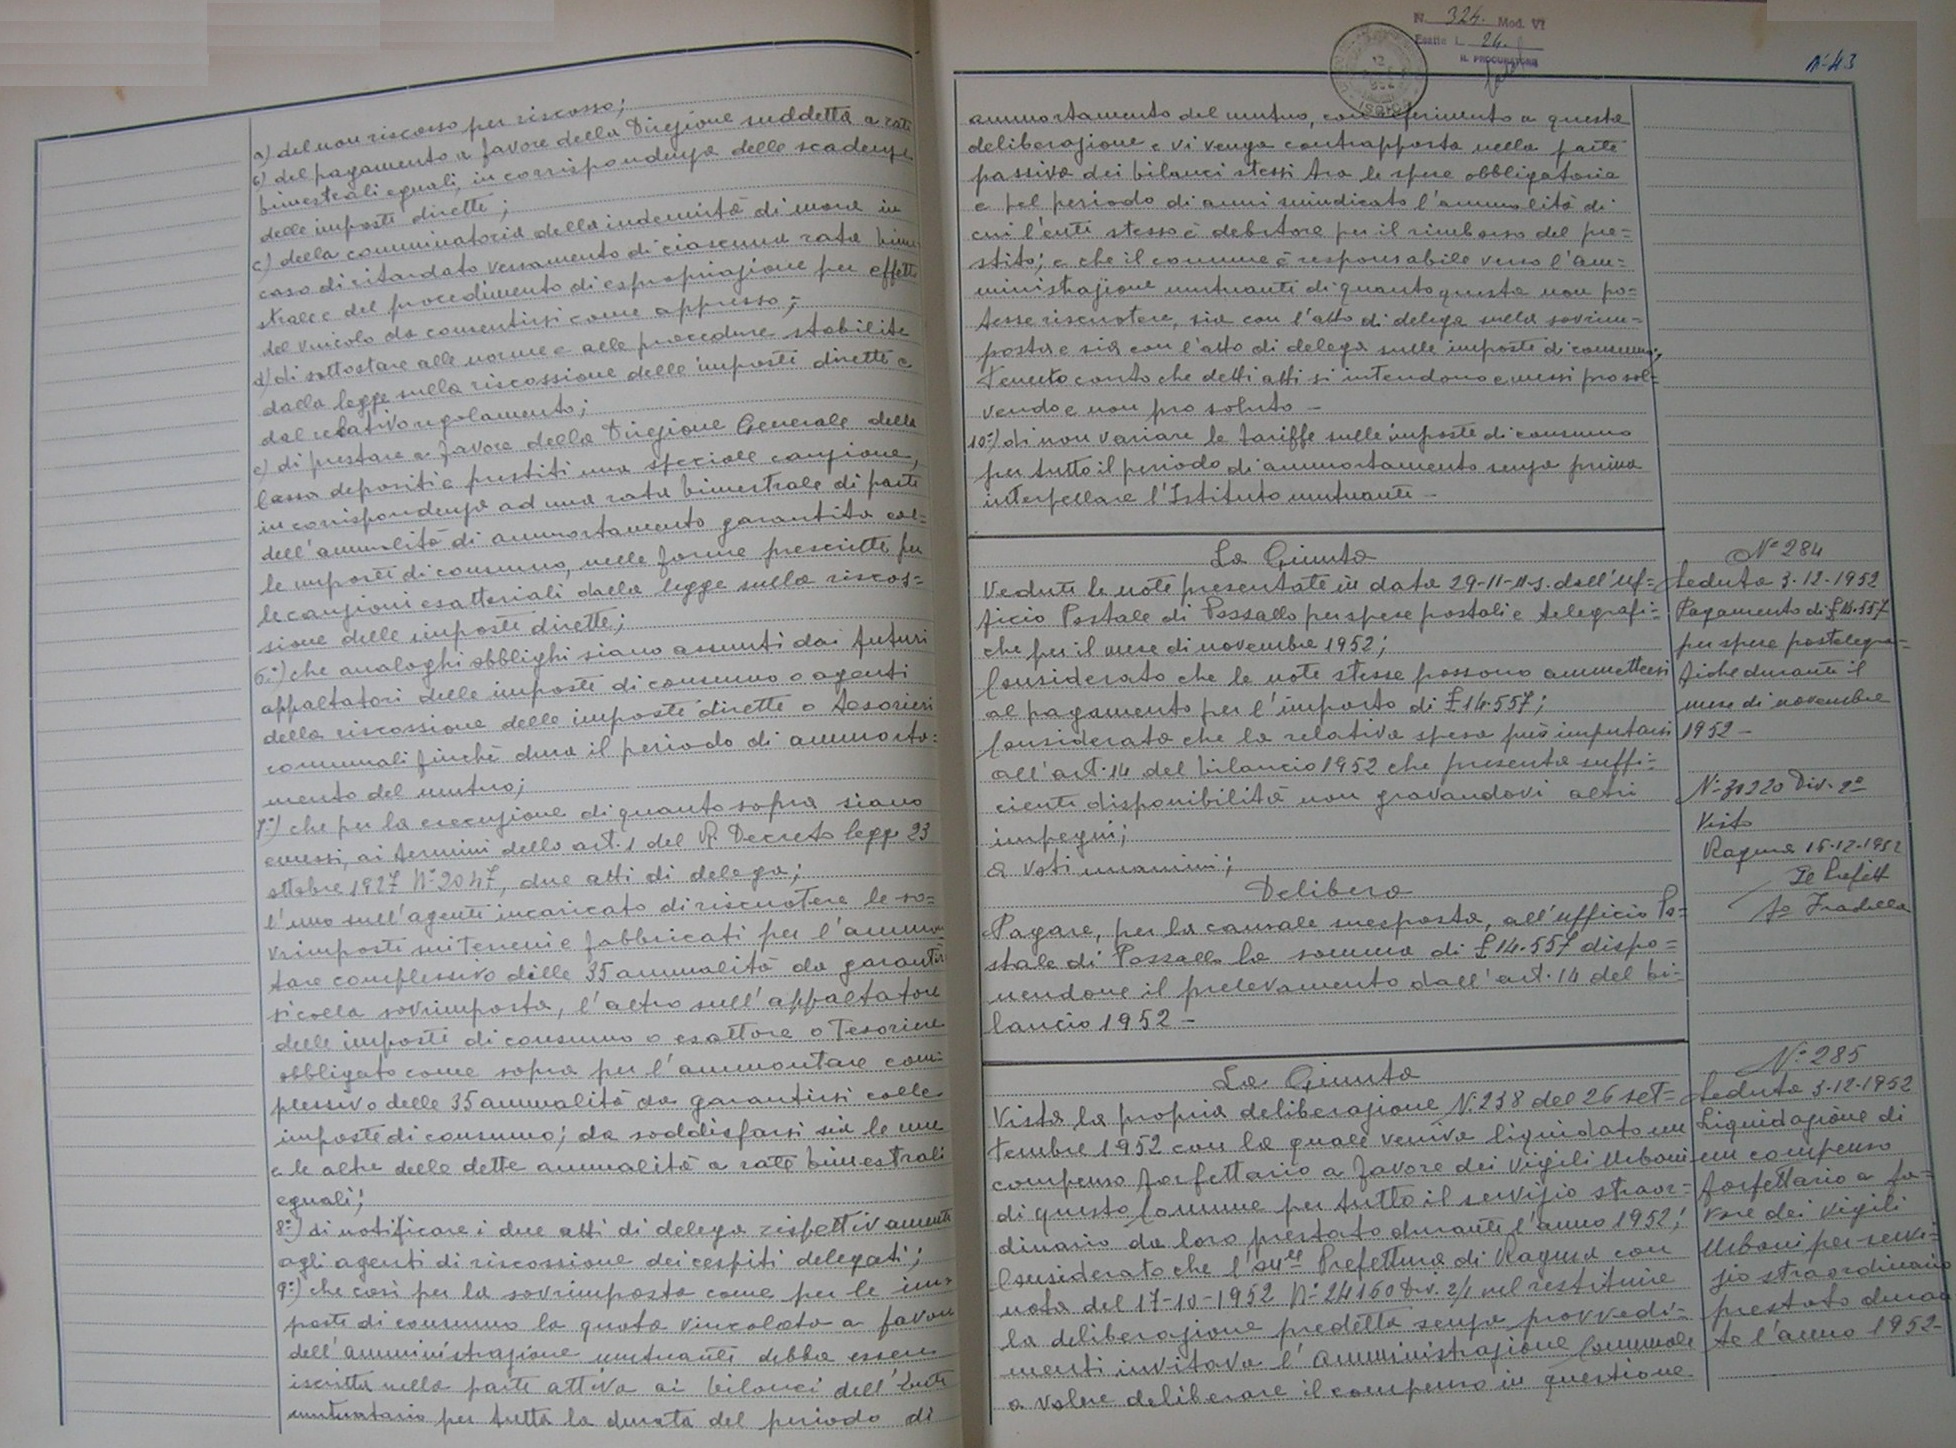 a) del non riscosso per riscosso;
b) del pagamento a favore della Direzione suddetta a rate
bimestrali eguali, in corrispondenza delle scadenze
delle imposte dirette;
c) della comminatoria della indennità di mora in
caso di ritardato versamento di ciascuna rata bime-
strale e del procedimento di espropriazione per effetto
del vincolo da consentirsi come appresso;
d) di sottostare alle norme e alle procedure stabilite
dalla legge sulla riscossione delle imposte dirette e
dal relativo regolamento;
e) di prestare a favore della Direzione Generale della
Cassa depositi e prestiti una speciale cauzione,
in corrispondenza ad una rata bimestrale di parte
dell'annualità di ammortamento garantita col=
le imposte di consumo, nelle forme prescritte per
le cauzioni esattoriali dalla legge sulla riscos=
sione delle imposte dirette;
6°) che analoghi obblighi siano assunti dai futuri
appaltatori delle imposte di consumo o agenti
della riscossione delle imposte dirette o tesorieri
comunali finchè dura il periodo di ammorta=
mento del mutuo;
7°) che per la esecuzione di quanto sopra siano
emessi, ai termini dello art. 1 del R. Decreto legge 23
ottobre 1927 N° 2047, due atti di delega;
l'uno sull'agente incaricato di riscuotere le so=
vrimposte sui terreni e fabbricati per l'ammon
tare complessivo delle 35 annualità da garantir
si colla sovrimposta, l'altro sull'appaltatore
delle imposte di consumo o esattore o Tesoriere
obbligato come sopra per l'ammontare com=
plessivo delle 35 annualità da garantirsi colle
imposte di consumo; da soddisfarsi sia le une
e le altre delle dette annualità a rate bimestrali
eguali;
8°) di notificare i due atti di delega rispettivamente
agli agenti di riscossione dei cespiti delegati;
9°) che così per la sovrimposta come per le im=
poste di consumo la quota vincolata a favore
dell'amministrazione mutuante debba essere
iscritta nella parte attiva ai bilanci dell'Ente
mutuatario per tutta la durata del periodo di
N. 324. Mod. VI
Esatte L. 24.
IL PROCURATORE
N° 43
ammortamento del mutuo, con riferimento a questa
deliberazione e vi venga contrapposta nella parte
passiva dei bilanci stessi tra le spese obbligatorie
e pel periodo di anni suindicato l'annualità di
cui l'ente stesso è debitore per il rimborso del pre=
stito; e che il comune è responsabile verso l'am=
ministrazione mutuante di quanto questa non po=
tesse riscuotere, sia con l'atto di delega sulla sovrim=
posta e sia con l'atto di delega sulle imposte di consumo;
tenuto conto che detti atti si intendono emessi pro sol=
vendo e non pro soluto -
10°) di non variare le tariffe sulle imposte di consumo
per tutto il periodo di ammortamento senza prima
interpellare l'Istituto mutuante -
La Giunta
Vedute le note presentate in data 29-11-u.s. dall'uf=
ficio Postale di Pozzallo per spese postali e telegrafi=
che per il mese di novembre 1952;
Considerato che le note stesse possono ammettersi
al pagamento per l'importo di £ 14.557;
Considerato che la relativa spesa può imputarsi
all'art. 14 del bilancio 1952 che presenta suffi=
ciente disponibilità non gravandovi altri
impegni;
a voti unanimi;
Delibera
Pagare, per la causale suesposta, all'ufficio Po=
stale di Pozzallo la somma di £ 14.557 dispo=
nendone il prelevamento dall'art. 14 del bi=
lancio 1952 -
N° 284
Seduta 3-12-1952
Pagamento di £ 14.557
per spese postelegra=
fiche durante il
mese di novembre
1952 -
N° 30220 Div. 2ª
Visto
Ragusa 16-12-1952
Il Prefetto
La Giunta
Vista la propria deliberazione N. 238 del 26 set=
tembre 1952 con la quale veniva liquidato un
compenso forfettario a favore dei vigili Urbani
di questo Comune per tutto il servizio straor=
dinario da loro prestato durante l'anno 1952;
Considerato che l'On.le Prefettura di Ragusa con
nota del 17-10-1952 N° 24160 Div. 2/1 nel restituire
la deliberazione predetta senza provvedi=
menti invitava l'Amministrazione Comunale
a voler deliberare il compenso in questione
N° 285
Seduta 3-12-1952
Liquidazione di
un compenso
forfettario a fa=
vore dei vigili
Urbani per servi=
zio straordinario
prestato duran
te l'anno 1952-